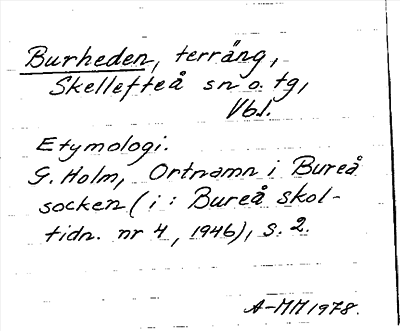 Burheden, terräng,
Skellefteå sn o. tg,
Vbl.
Etymologi.
G. Holm, Ortnamn i Bureå
socken (i: Bureå skol-
tidn. nr 4, 1946), s. 2.
A-MM 1978.